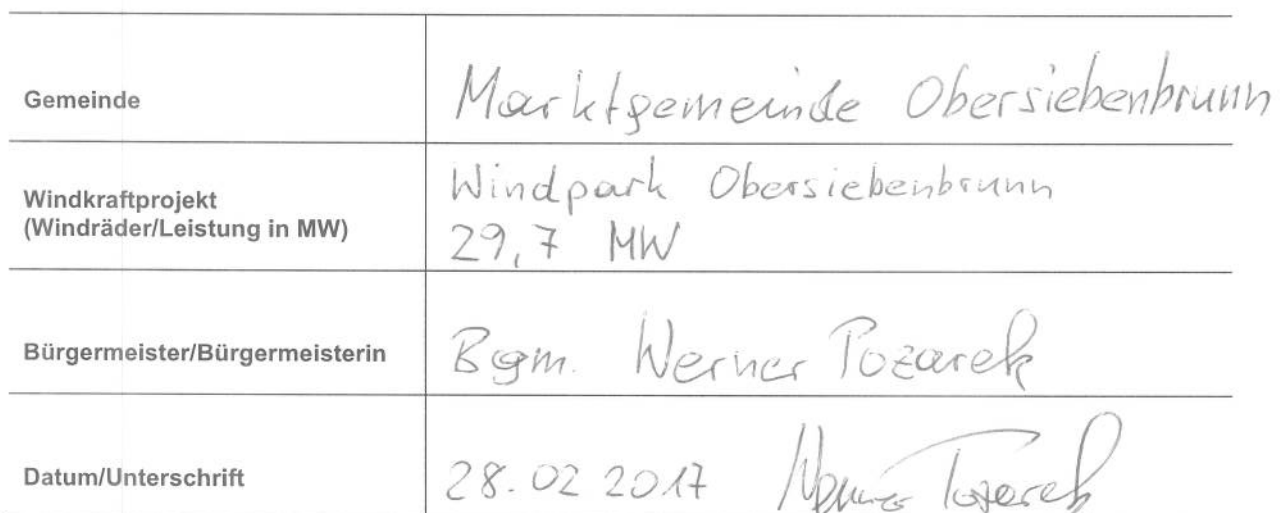 Gemeinde Marktgemeinde Obersiebenbrunn
Windkraftprojekt
(Windräder/Leistung in MW)
Windpark Obersiebenbrunn
29,7 MW
Bürgermeister/Bürgermeisterin Bgm. Werner Pozarek
Datum/Unterschrift 28.02 2017 Werner Pozarek